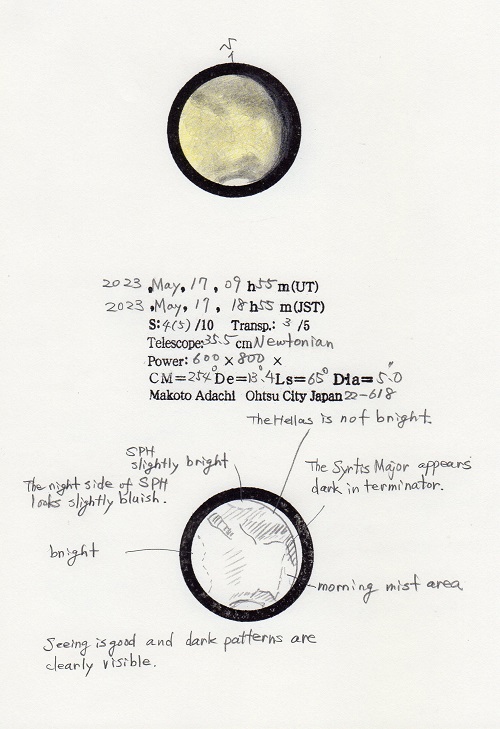 2023, May, 17, 09 h55 m(UT)
2023, May, 17, 18h55 m(JST)
S:4(5)/10 Transp.: 3 /5
Telescope:35.5cmNewtonian
Power:600×800×
CM=254° De=13.°4 Ls=65° Dia=5."0
Makoto Adachi Ohtsu City Japan 22-618
The Hellas is not bright.
SPH
slightly bright
The Syrtis Major appears
dark in terminator.
The night side of SPH
looks slightly bluish.
bright
morning mist area
Seeing is good and dark patterns are
clearly visible.